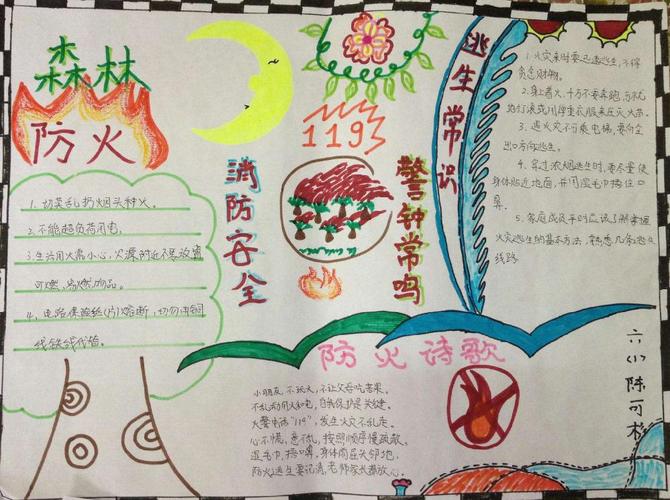 森林
防火
1. 切莫乱扔烟头种火。
2. 不能超负荷用电,
3. 生活用火需小心，火源附近不要放置
可燃、易燃物品。
4、电路保险丝(片)熔断，切勿用铜
线铁线代替。
消防安全
119
警钟常鸣
逃生常识
1. 火灾来时要迅速逃生,不得
贪恋财物。
2. 身上着火,千万不要奔跑,可就
地打滚或用厚重衣服来压灭火苗。
3. 遇火灾不可乘电梯,要向安全
出口方向逃生。
4. 穿过浓烟逃生时,要尽量使
身体贴近地面,并用湿毛巾捂住口
鼻。
5. 家庭成员平时应该了解掌握
火灾逃生的基本方法,熟悉几条逃生
线路
防火诗歌
小朋友,不玩火,不让父母吃苦果。
不乱动用火和电,自我保护是关键。
火警电话"119",发生火灾不乱走。
心不慌,意不乱,按照顺序慢疏散。
湿毛巾,捂口鼻,身体前屈头邻地,
防火逃生要记清,老师家长都放心。
六(1)陈可